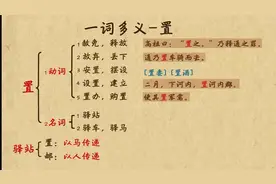 一词多义-置
置
1动词
1、赦免，释放
2、放弃，丢下
3、安置，摆设
4、设置，建立
5、置办，购置
2名词
1、驿站
2、驿车，驿马
高祖曰：“置之。”乃释通之罪。
道乃置车骑而去。
[置妻] [置酒]
二月，下河内，置河内郡。
驿站
置：以马传递
邮：以人传递